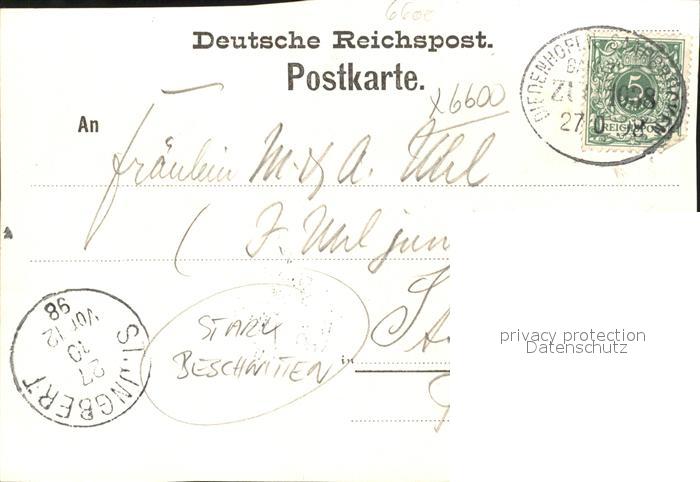 6600
Deutsche Reichspost.
Postkarte.
x6600
An
Fräulein M. & A. Uhl
( F. Uhl jun
DIEDENHOFEN
ZUG 1058
27 10
5
REICHSPOST
ST. INGBERT
27
10
Vor 12
98
STARK
BESCHNITTEN
in
privacy protection
Datenschutz